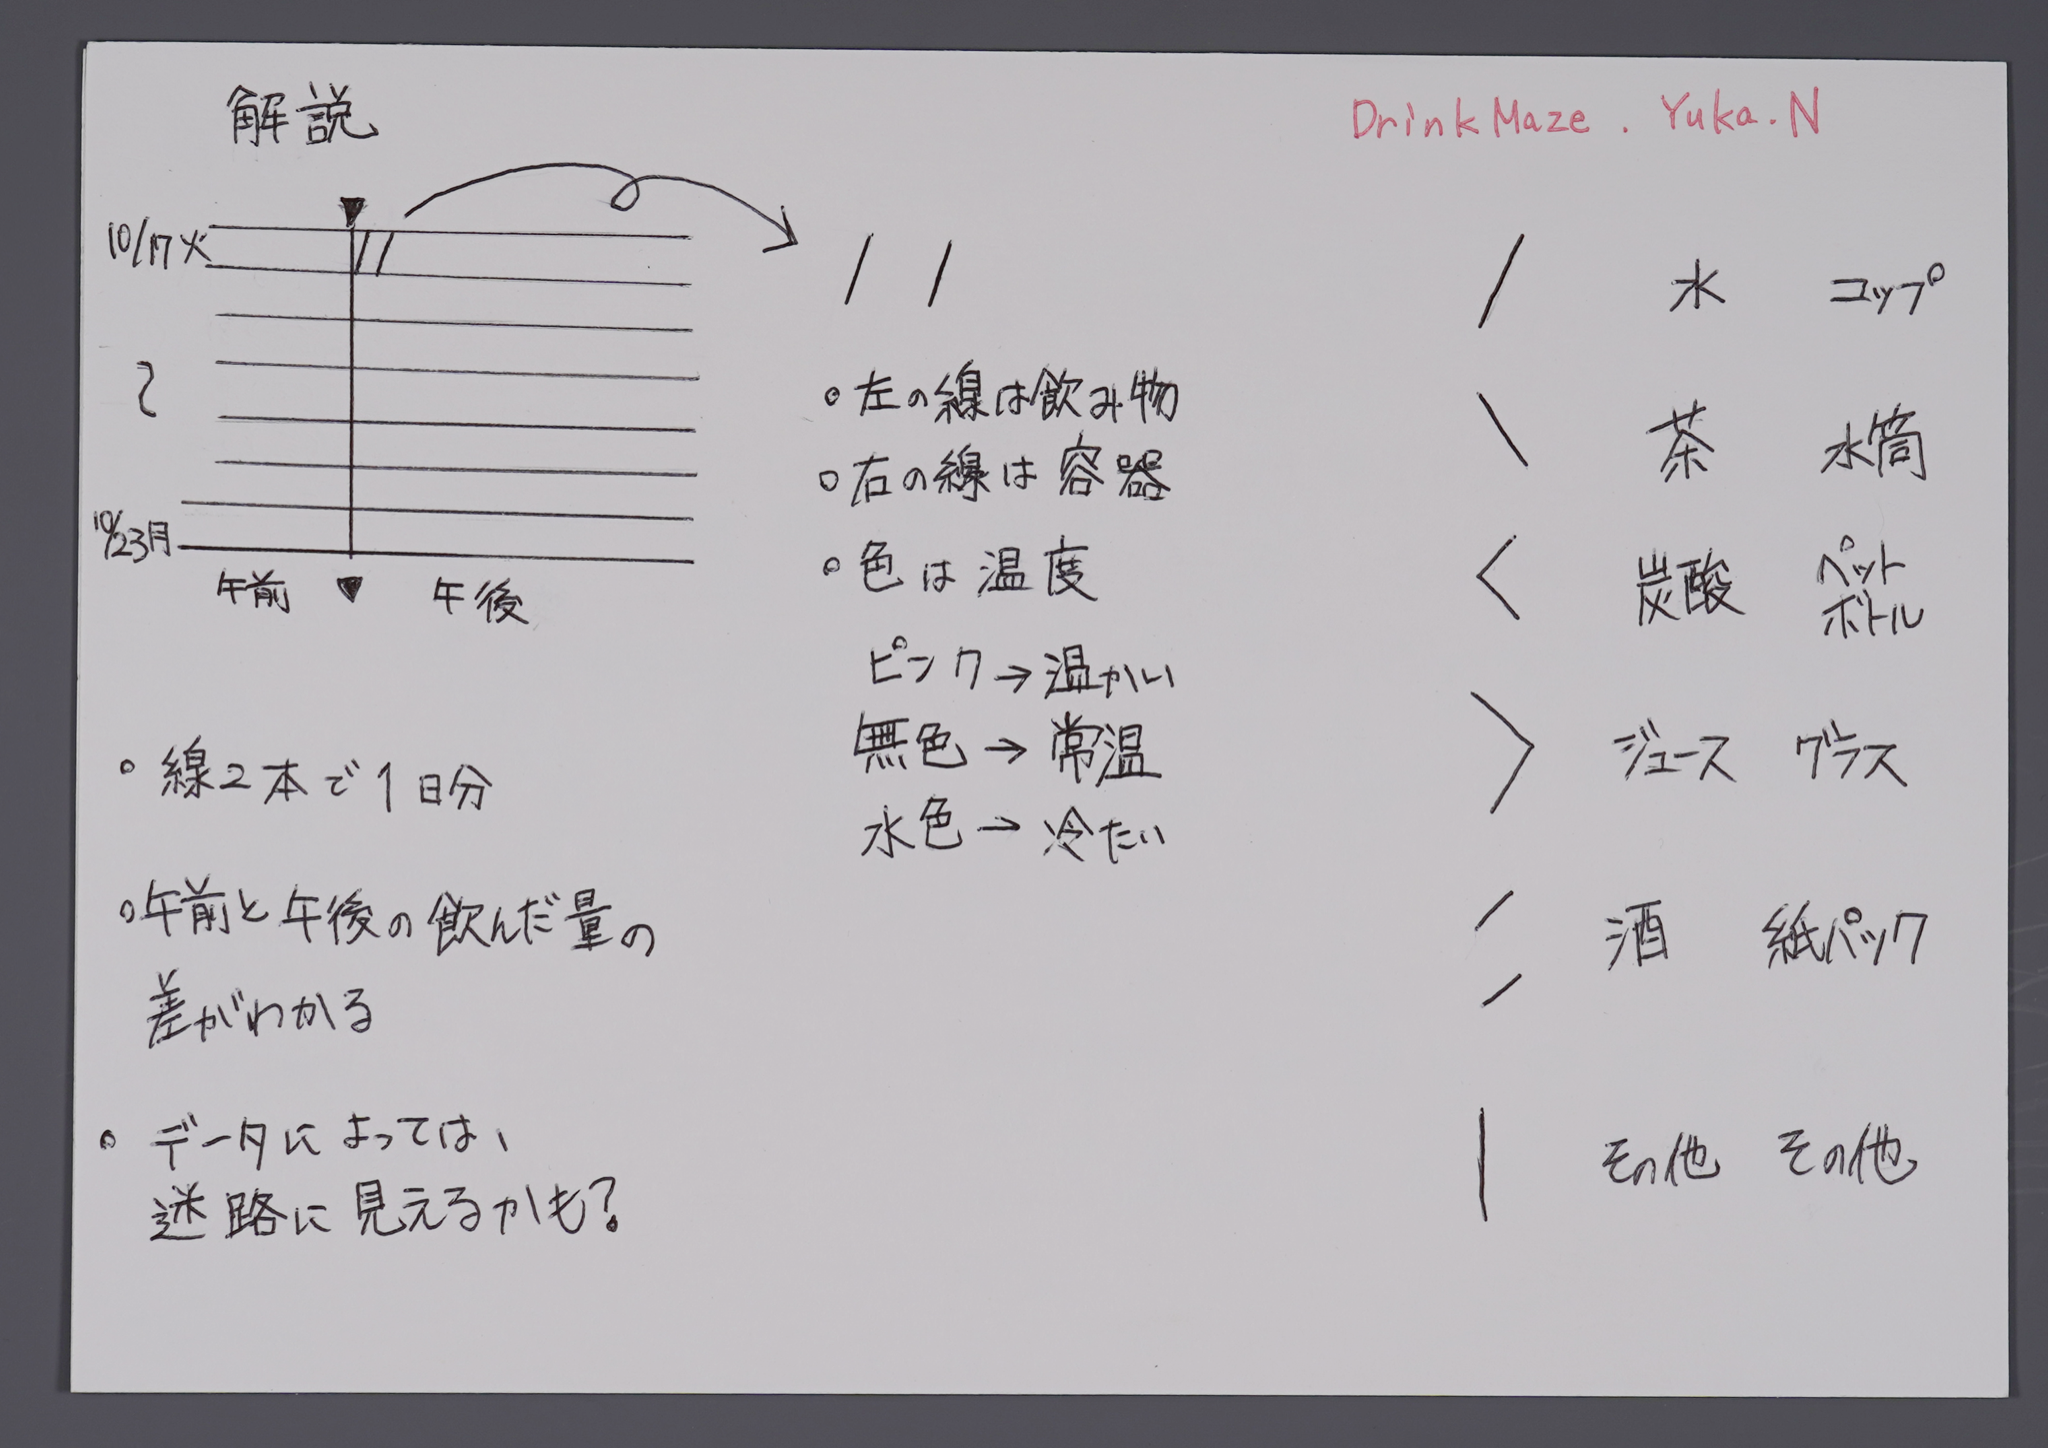 解説
Drink Maze. Yuka.N
10/17 火
〜
10/23月
午前 午後
・線2本で1日分
・午前と午後の飲んだ量の
差がわかる
・データによっては、
迷路に見えるかも?
・左の線は飲み物
・右の線は容器
・色は温度
ピンク→温かい
無色→常温
水色→冷たい
/ 水 コップ
\ 茶 水筒
< 炭酸 ペット
ボトル
> ジュース グラス
酒 紙パック
| その他 その他